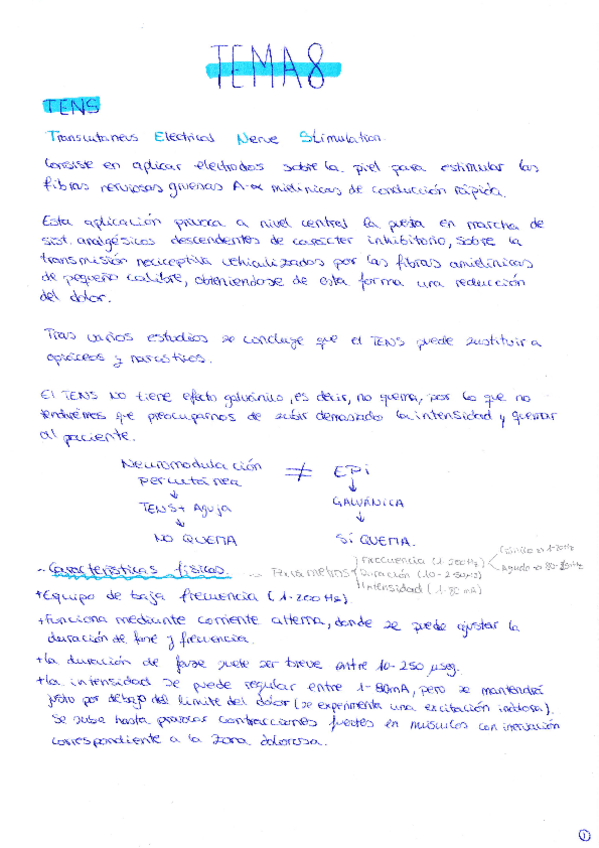 TEMA 8
TENS
Transcutaneus Electrical Nerve Stimulation.
Consiste en aplicar electrodos sobre la piel para estimular las
fibras nerviosas gruesas A-α mielínicas de conducción rápida.
Esta aplicación provoca a nivel central la puesta en marcha de
sist. analgésicos descendentes de carácter inhibitorio, sobre la
transmisión nociceptiva vehiculizados por las fibras amielínicas
de pequeño calibre, obteniéndose de esta forma una reducción
del dolor.
Tras varios estudios se concluye que el TENS puede sustituir a
opiáceos y narcóticos.
El TENS NO tiene efecto galvánico, es decir, no quema, por lo que no
tendremos que preocuparnos de subir demasiado la intensidad y quemar
al paciente.
Neuromodulación ≠ EPi
percutánea ↓
↓ GALVÁNICA
TENS + Aguja ↓
↓ SÍ QUEMA.
NO QUEMA
- Características físicas. → Parámetros
Frecuencia (1-200Hz)
Crónico → 1-20Hz
Agudo → 80-
Duración (10-250μs)
Intensidad (1-80 mA)
+ Equipo de baja frecuencia (1-200 Hz)
+ Funciona mediante corriente alterna, donde se puede ajustar la
duración de fase y frecuencia.
+ la duración de fase suele ser breve entre 10-250 μseg.
+ la intensidad se puede regular entre 1-80mA, pero se mantendrá
justo por debajo del límite del dolor (se experimenta una excitación indolora).
Se suba hasta provocar contracciones fuertes en músculos con inervación
correspondiente a la zona dolorosa.
1